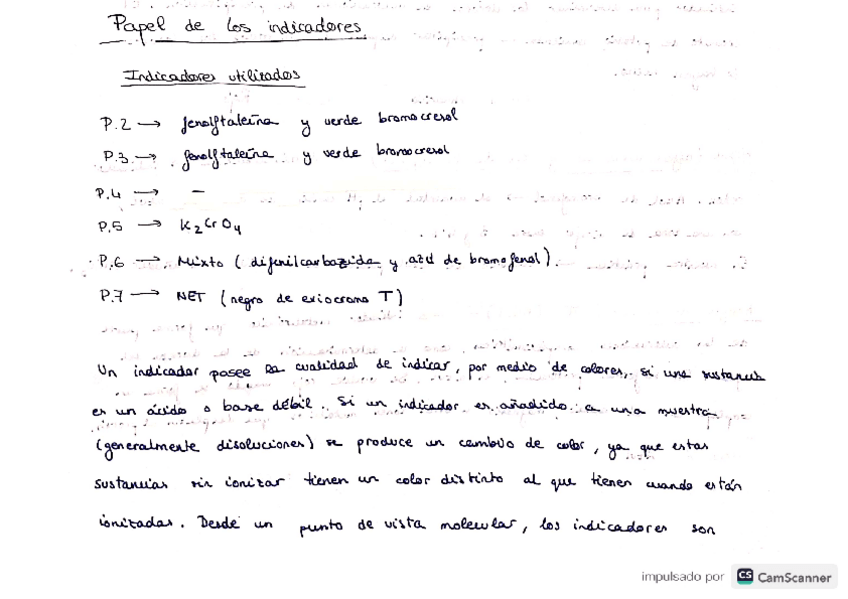 Papel de los indicadores
Indicadores utilizados
P.2 → fenolftaleína y verde bromocresol
P.3 → fenolftaleína y verde bromocresol
P.4 → -
P.5 → K2CrO4
P.6 → Mixto (difenilcarbazida y azul de bromofenol).
P.7 → NET (negro de eriocromo T)
Un indicador posee la cualidad de indicar, por medio de colores, si una sustancia
es un ácido o base débil. Si un indicador es añadido a una muestra
(generalmente disoluciones) se produce un cambio de color, ya que estas
sustancias sin ionizar tienen un color distinto al que tienen cuando están
ionizadas. Desde un punto de vista molecular, los indicadores son
impulsado por CS CamScanner